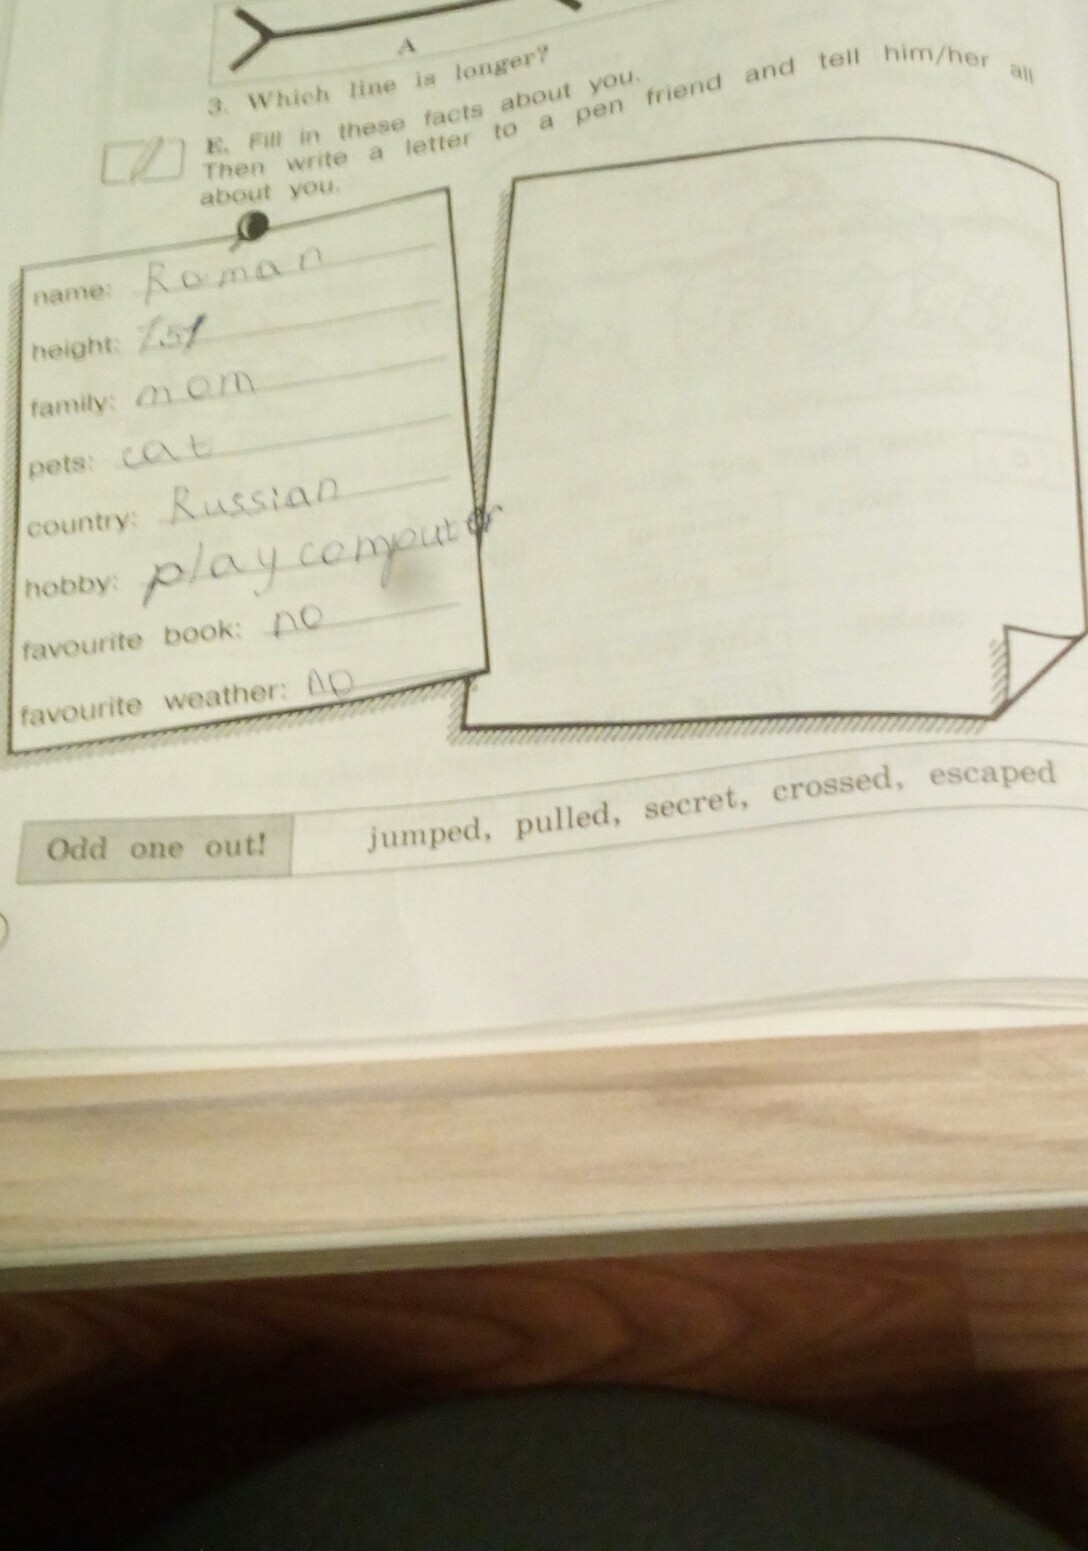 A
3. Which line is longer?
E. Fill in these facts about you.
Then write a letter to a pen friend and tell him/her all
about you.
name: Roman
height: 151
family: mom
pets: cat
country: Russian
hobby: play computer
favourite book: no
favourite weather: no
Odd one out! jumped, pulled, secret, crossed, escaped